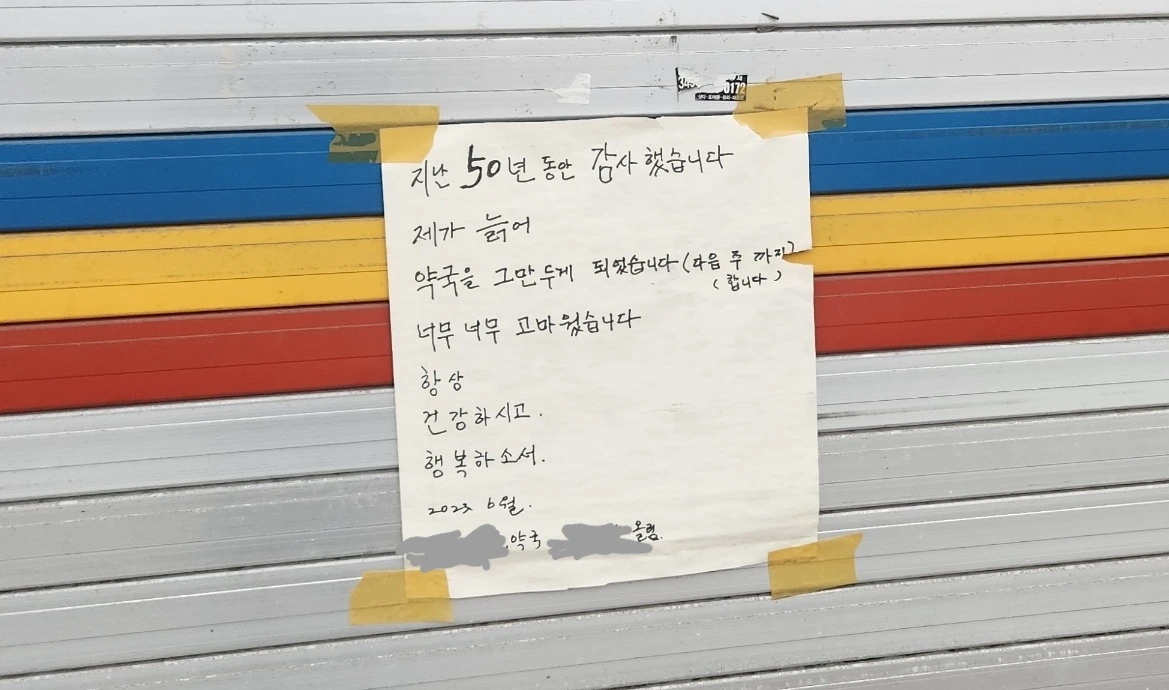 지난 50년 동안 감사했습니다
제가 늙어
약국을 그만두게 되었습니다 (다음 주 까지)
(합니다)
너무 너무 고마웠습니다
항상
건강하시고.
행복하소서.
2023 6월.
약국 올림.